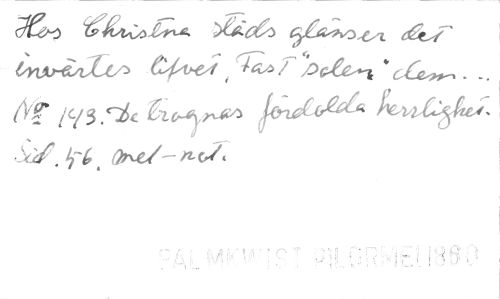 Hos Christna städs glänser det
invärtes lifvet, Fast "solen" dem...
No 143. De trognas fördolda herrlighet.
Sid. 56. mel-not.
PALMKWIST PILGRMEL 1880